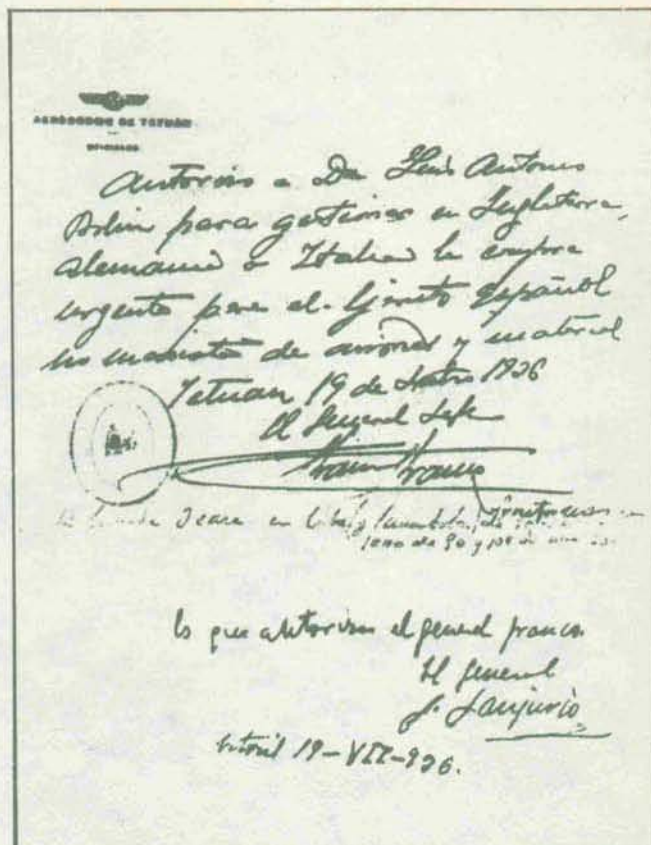 AERÓDROMO DE TETUÁN
OFICINAS
Autorizo a Dn Luis Antonio
Bolin para gestionar en Inglaterra,
Alemania o Italia la compra
urgente para el Ejército español
no marxista de aviones y material
Tetuan 19 de Julio 1936
El General Jefe
Franco
lo que autorizo el general franco
El general
J. Sanjurjo
Estoril 19-VII-936.